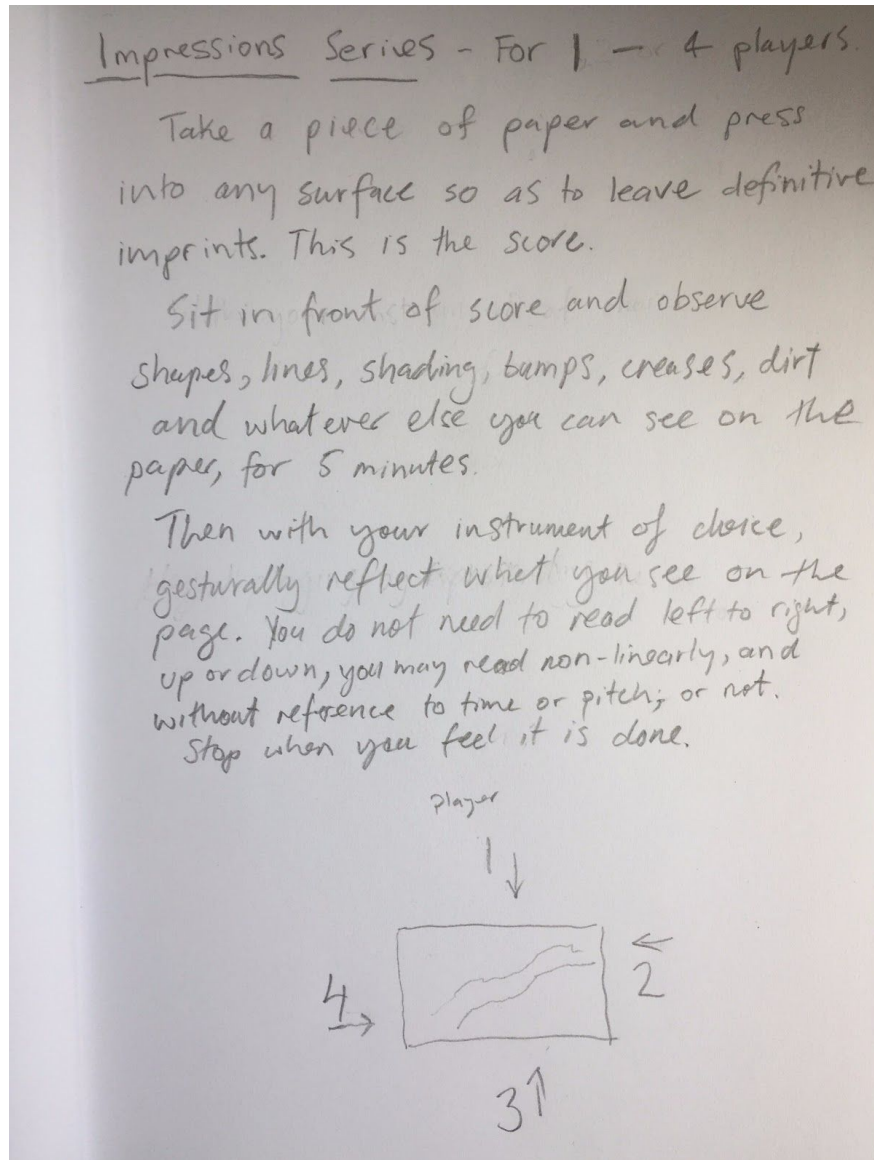 Impressions Series - For 1 - 4 players.
Take a piece of paper and press
into any surface so as to leave definitive
imprints. This is the score.
Sit in front of score and observe
shapes, lines, shading, bumps, creases, dirt
and whatever else you can see on the
paper, for 5 minutes.
Then with your instrument of choice,
gesturally reflect what you see on the
page. You do not need to read left to right,
up or down, you may read non-linearly, and
without reference to time or pitch; or not.
Stop when you feel it is done.
player
1 ↓
←
2
4
→
3 ↑